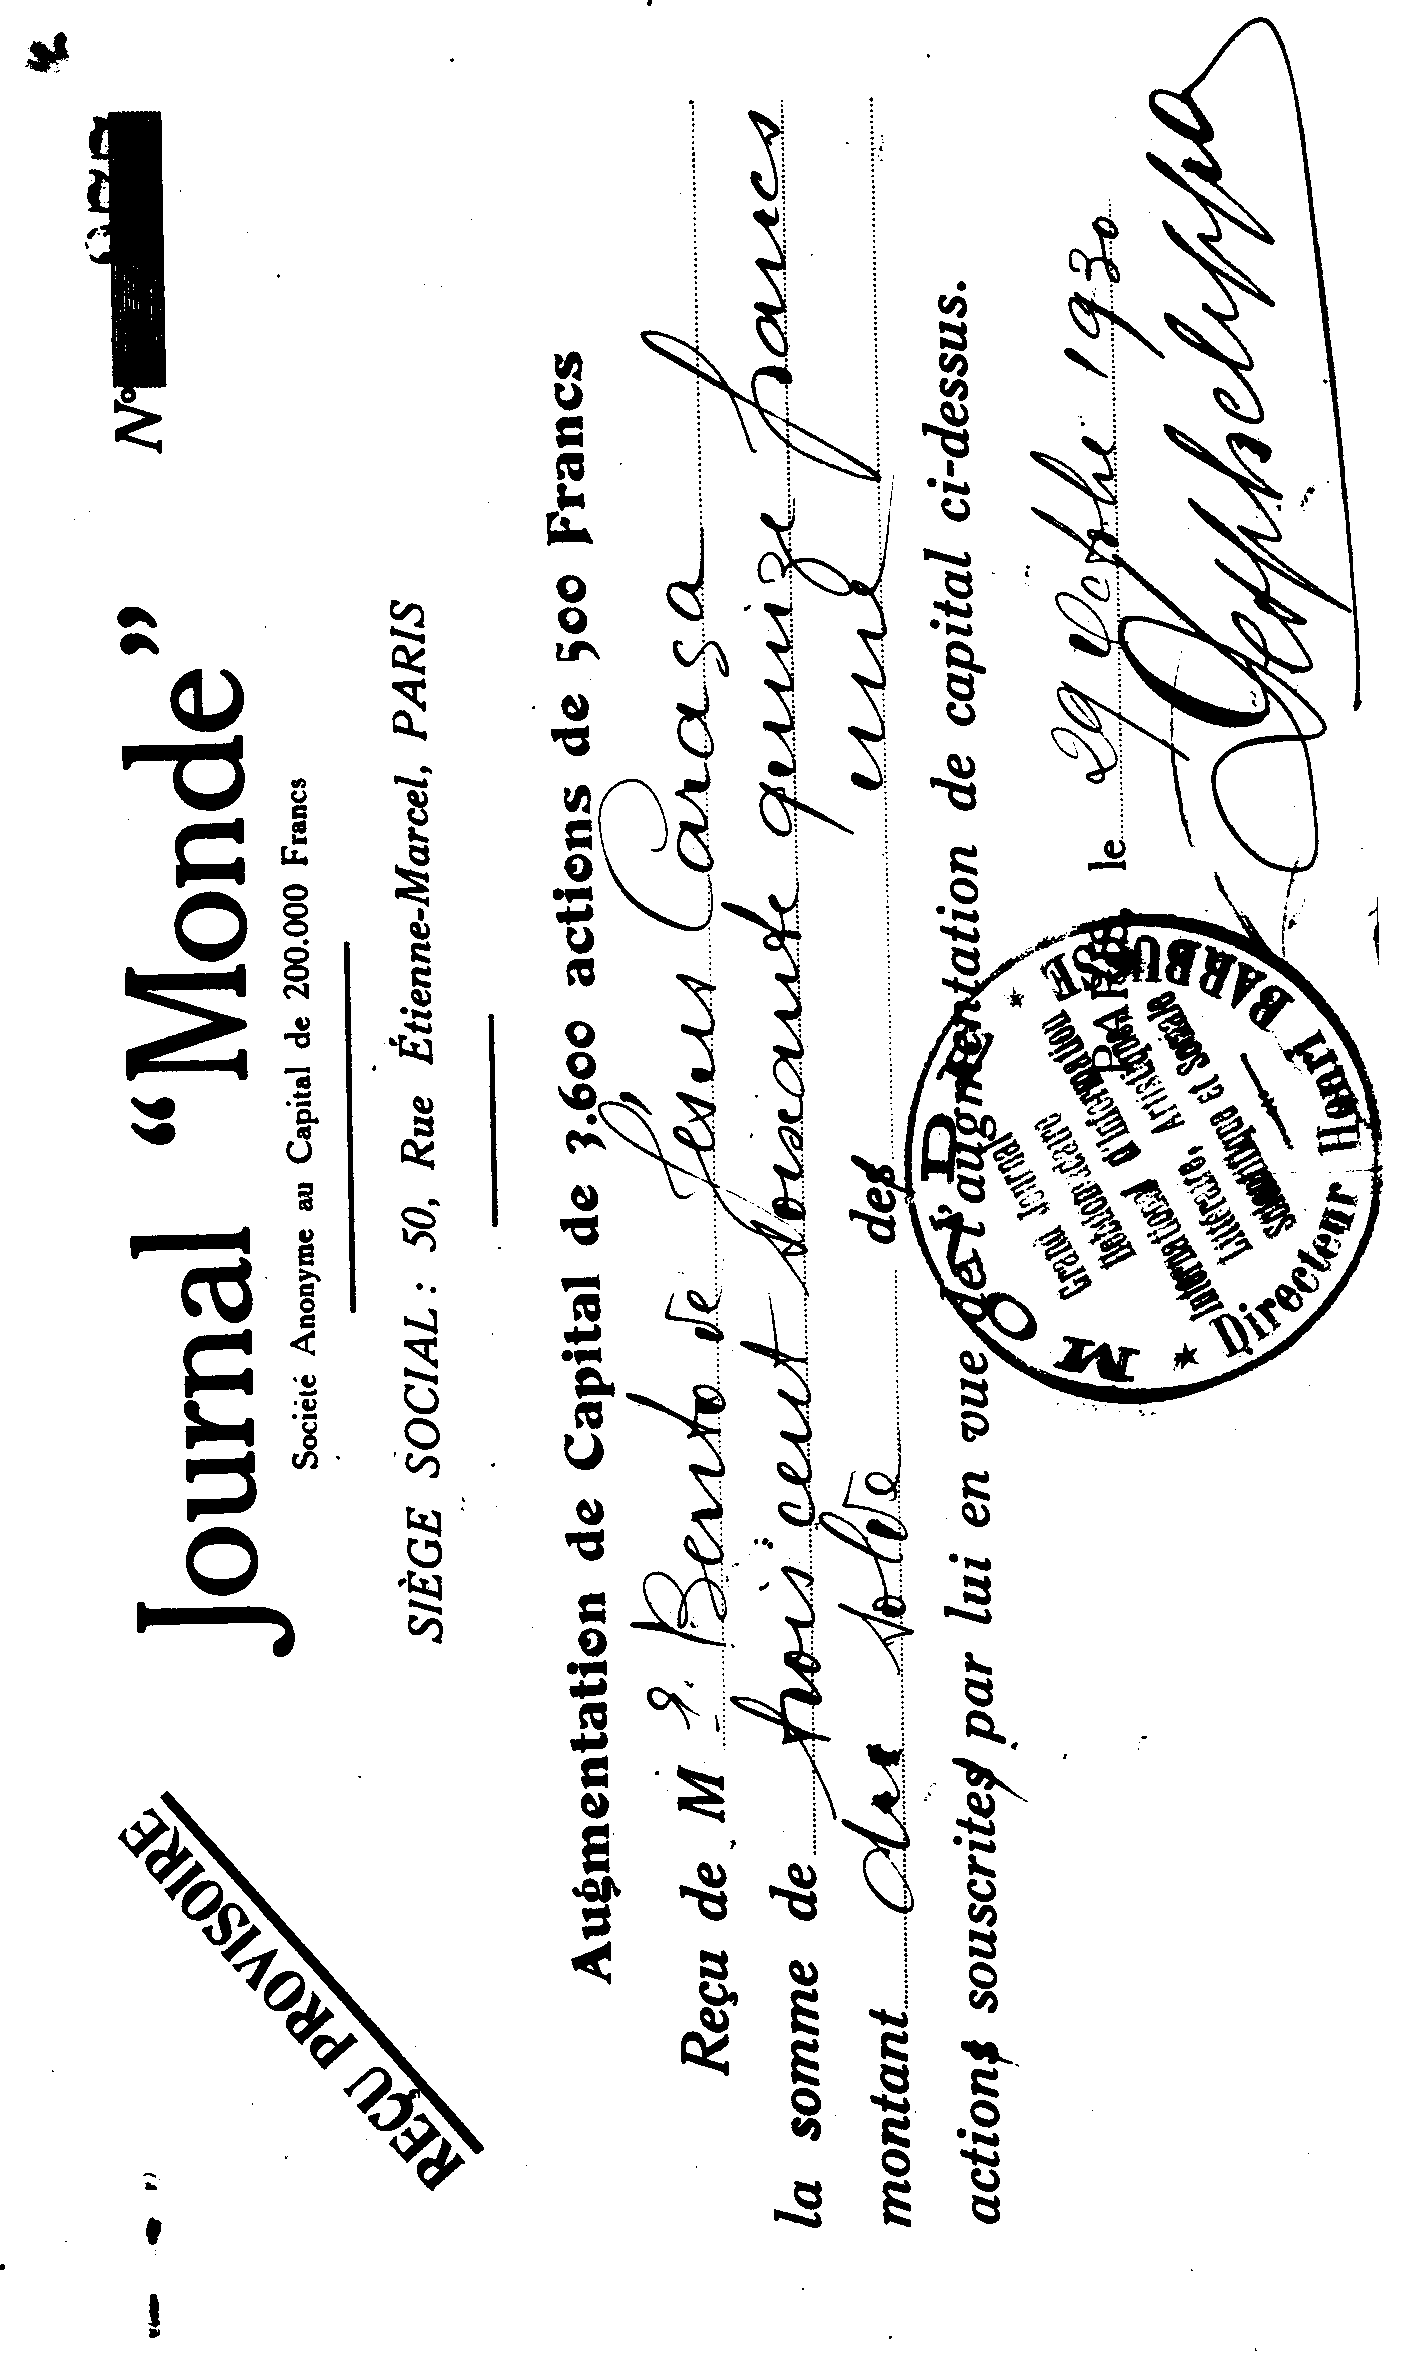 REÇU PROVISOIRE
Journal “Monde”
N°
Société Anonyme au Capital de 200.000 Francs
SIÈGE SOCIAL : 50, Rue Étienne-Marcel, PARIS
Augmentation de Capital de 3.600 actions de 500 Francs
Reçu de M Benito de Jesus Caraça
la somme de trois cent soixante quinze francs
montant du solde de des une
actions souscrites par lui en vue de l'augmentation de capital ci-dessus.
PARIS le 29 Octbre 1930
MONDE
Grand Journal
Hebdomadaire
International d'Information
Littéraire, Artistique,
Scientifique et Sociale
Directeur Henri BARBUSSE